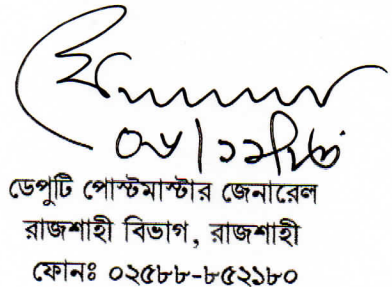 ডেপুটি পোস্টমাস্টার জেনারেল
রাজশাহী বিভাগ, রাজশাহী
ফোনঃ ০২৫৮৮-৮৫২১৮০